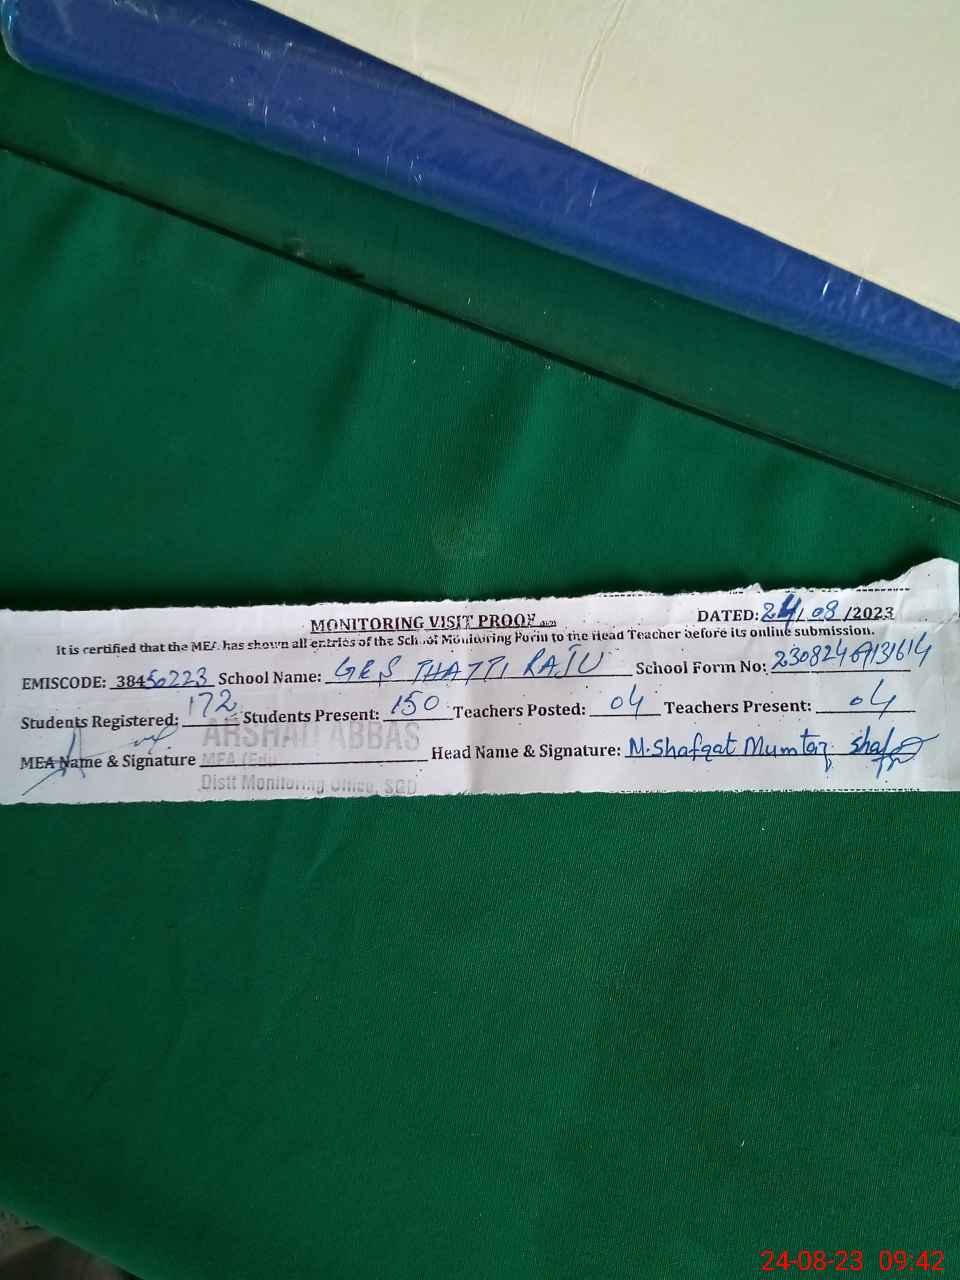 MONITORING VISIT PROOF
DATED: 24/08/2023
It is certified that the MEA has shown all entries of the School Monitoring Form to the Head Teacher before its online submission.
EMISCODE: 38450223 School Name: GES THATTI RAJU School Form No: 23082409131614
Students Registered: 172 Students Present: 150 Teachers Posted: 04 Teachers Present: 04
ARSHAD ABBAS
MEA Name & Signature MEA (Edu) Head Name & Signature: M.Shafqat Mumtaz
Distt Monitoring Office, SGD
24-08-23 09:42